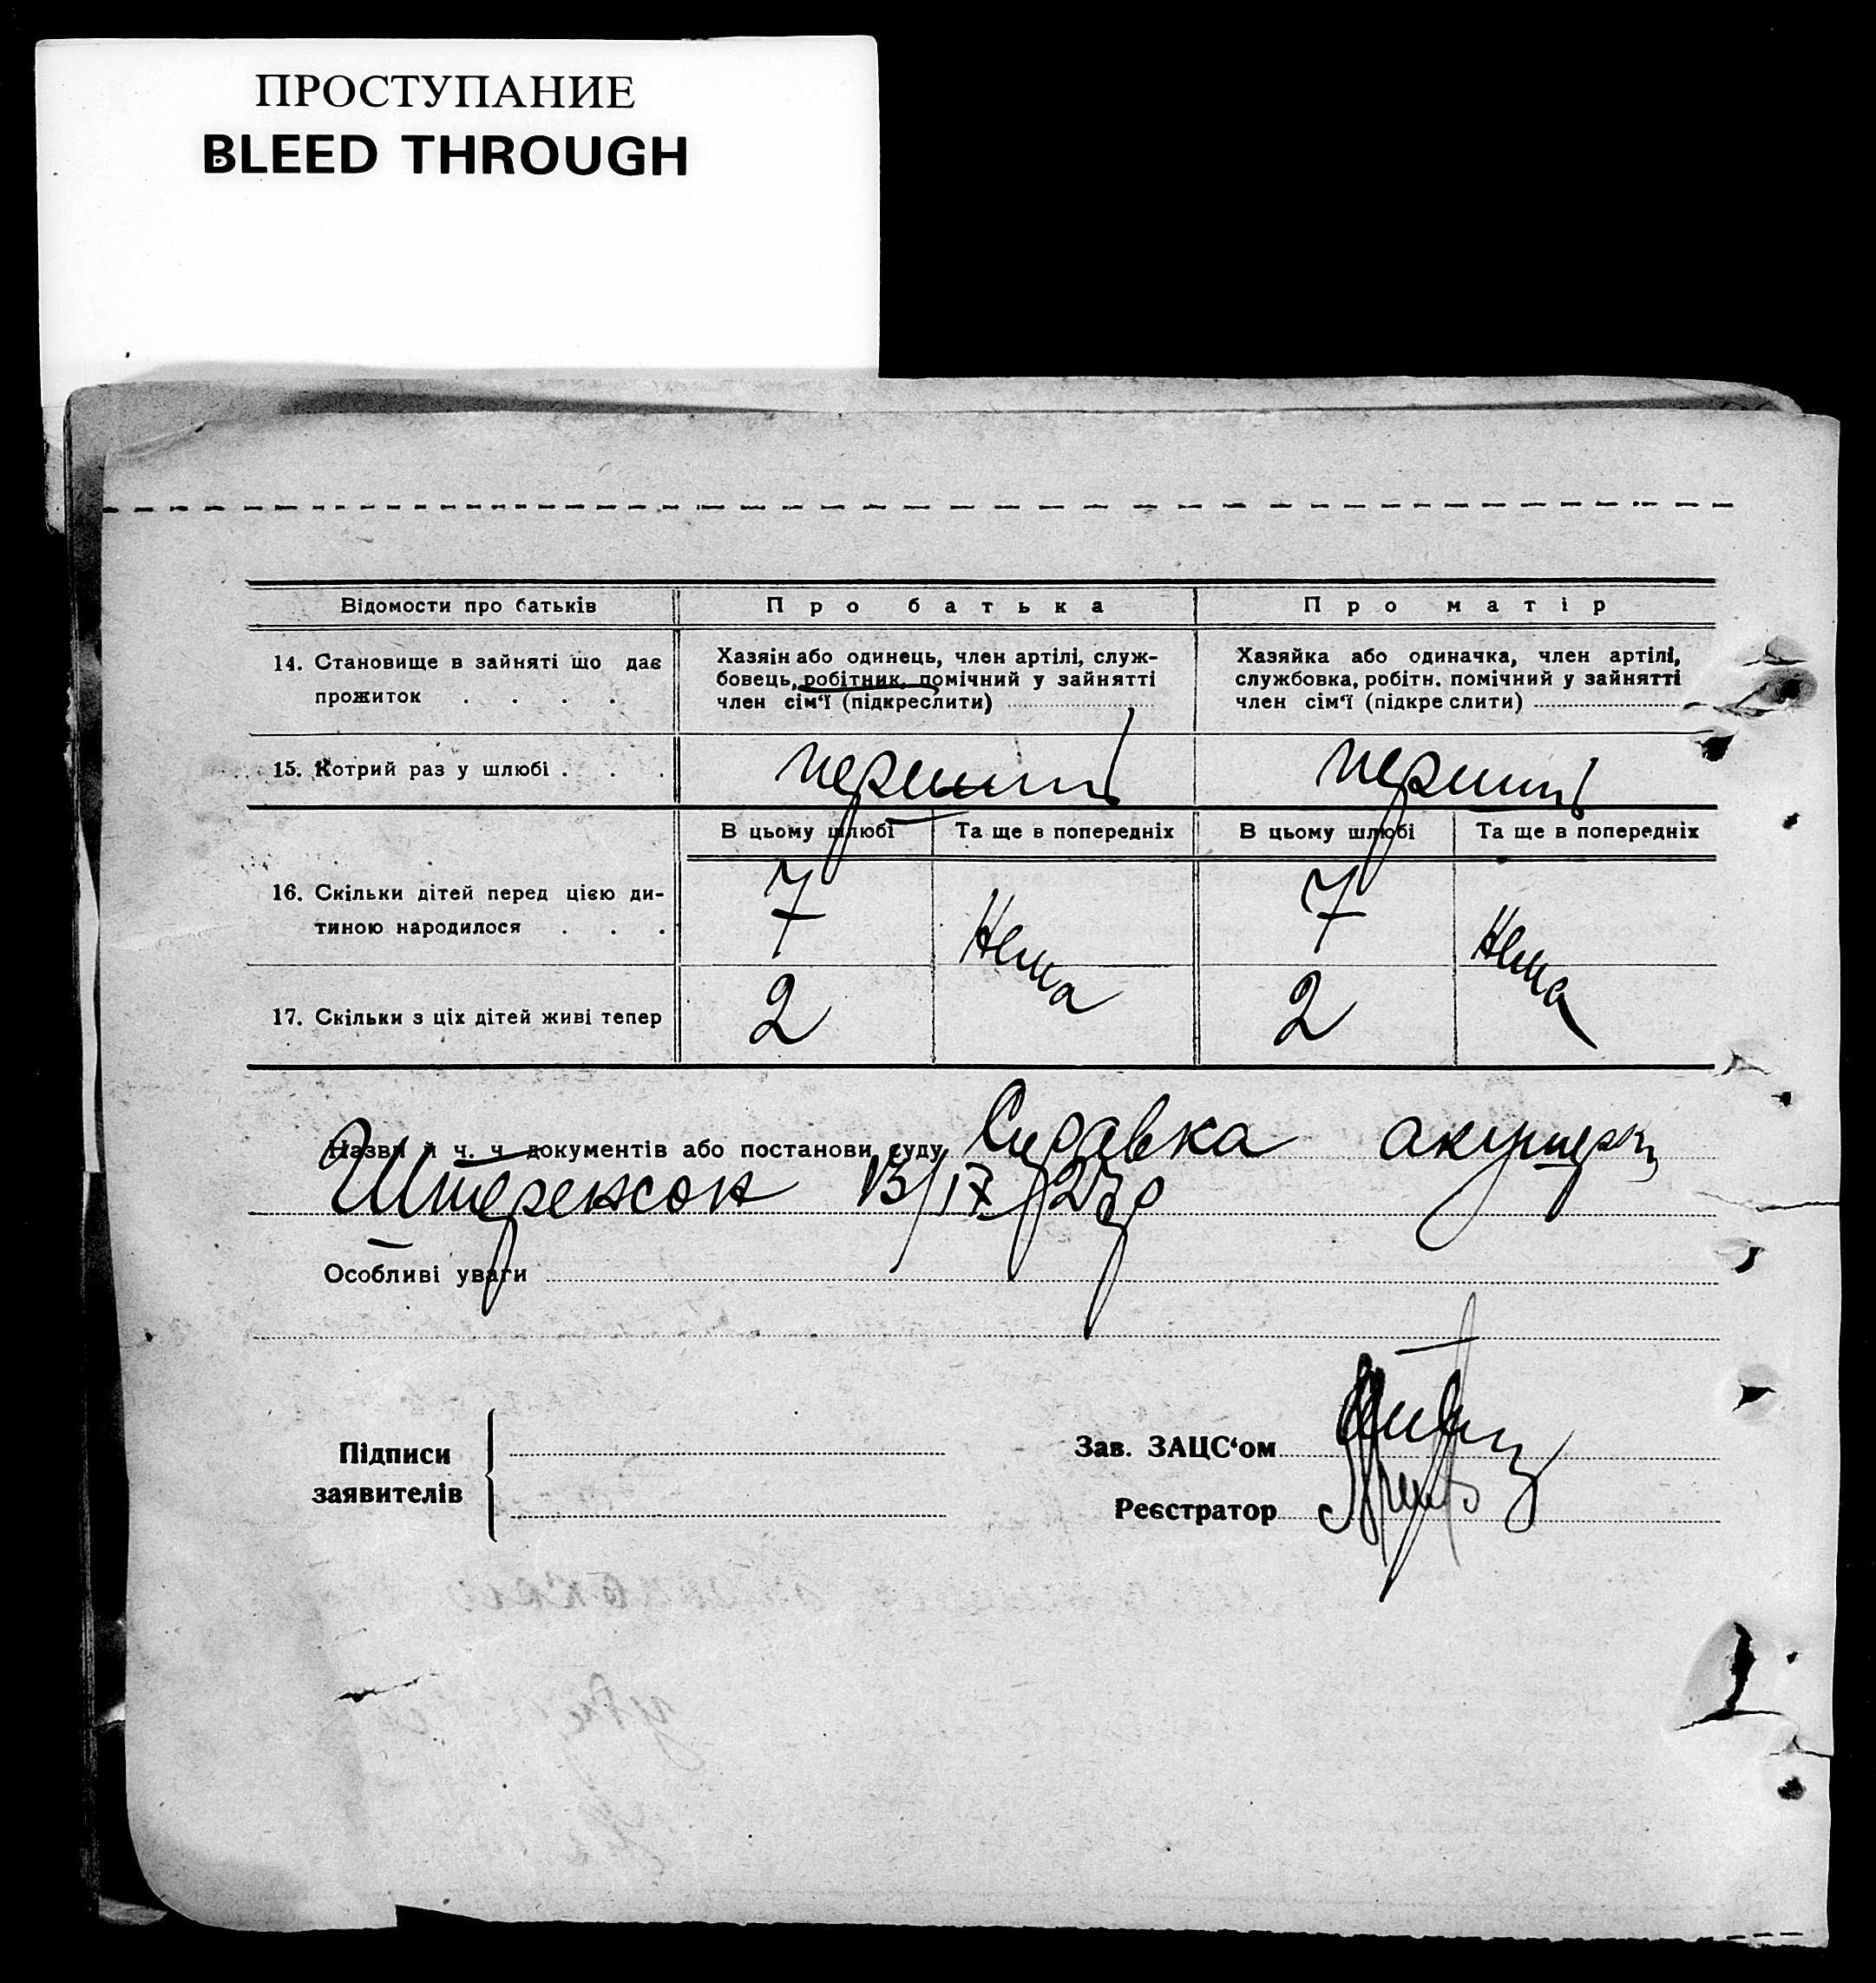 ПРОСТУПАНИЕ
BLEED THROUGH
Відомости про батьків
Про батька
Про матір
14. Становище в зайняті що дає
прожиток . . . .
Хазяін або одинець, член артілі, служ-
бовець, робітник, помічний у зайнятті
член сім‘ї (підкреслити)
Хазяйка або одиначка, член артілі,
службовка, робітн. помічний у зайнятті
член сім‘ї (підкре слити)
15. Котрий раз у шлюбі . . .
перший
перший
В цьому шлюбі
Та ще в попередніх
В цьому шлюбі
Та ще в попередніх
16. Скільки дітей перед цією ди-
тиною народилося . . .
7
Нема
7
Нема
17. Скільки з ціх дітей живі тепер
2
2
Назви й ч. ч. документів або постанови суду Справка акушерки
Штеренсон 13/IX 27р
Особливі уваги
Підписи
заявителів
Зав. ЗАЦС‘ом
Реєстратор